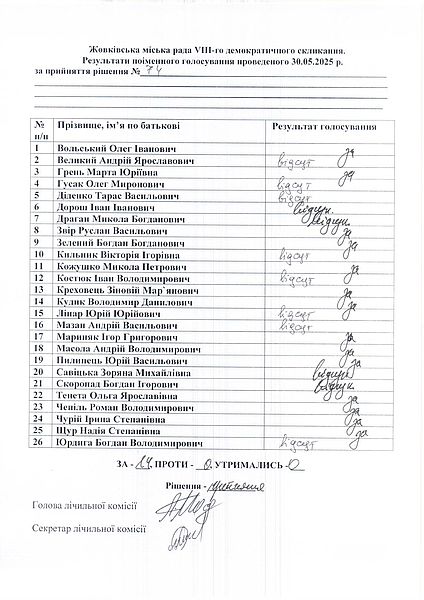 Жовківська міська рада VIII-го демократичного скликання.
Результати поіменного голосування проведеного 30.05.2025 р.
за прийняття рішення № 74
№ п/п Прізвище, ім’я по батькові Результат голосування
1 Вольський Олег Іванович за
2 Великий Андрій Ярославович відсут
3 Грень Марта Юріївна за
4 Гусак Олег Миронович відсут
5 Діденко Тарас Васильович відсут
6 Дорош Іван Іванович
7 Драган Микола Богданович
8 Звір Руслан Васильович за
9 Зелений Богдан Богданович за
10 Кильник Вікторія Ігорівна відсут
11 Кожушко Микола Петрович за
12 Костюк Іван Володимирович відсут
13 Креховець Зіновій Мар`янович за
14 Кудик Володимир Данилович за
15 Ліпар Юрій Юрійович відсут
16 Мазан Андрій Васильович відсут
17 Мариняк Ігор Григорович за
18 Масола Андрій Володимирович за
19 Пилипець Юрій Васильович за
20 Савіцька Зоряна Михайлівна
21 Скоропад Богдан Ігорович
22 Тенета Ольга Ярославівна за
23 Чепіль Роман Володимирович за
24 Чурій Ірина Степанівна за
25 Щур Надія Степанівна за
26 Юрдига Богдан Володимирович відсут
ЗА - 14. ПРОТИ - 0. УТРИМАЛИСЬ - 0
Рішення - прийняте
Голова лічильної комісії
Секретар лічильної комісії